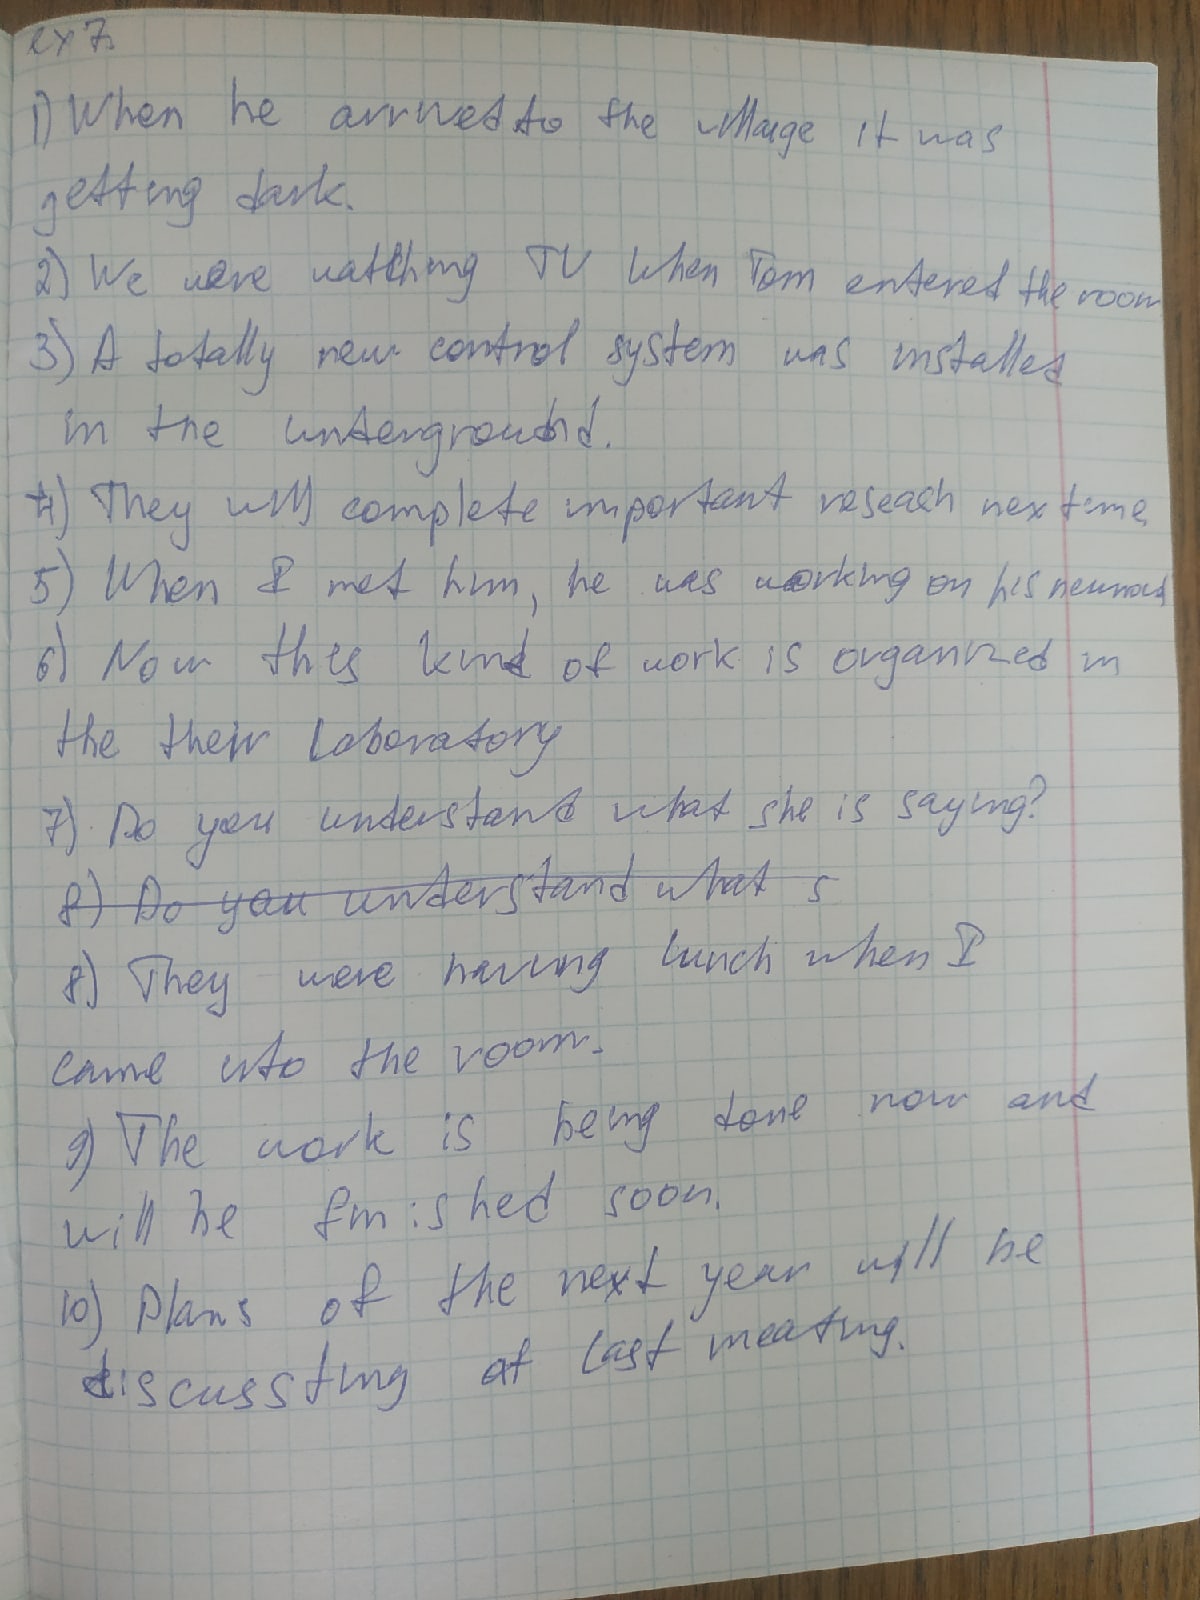 ex 7.
1) When he arrived to the village it was
getting dark.
2) We were watching TV when Tom entered the room
3) A totally new control system was installed
in the underground.
4) They will complete important reseach next time
5) When I met him, he was working on his
6) Now this kind of work is organized in
the their laboratory
7) Do you understand what she is saying?
8) Do you understand what s
8) They were having lunch when I
came into the room.
9) The work is being done now and
will be finished soon.
10) Plans of the next year will be
discussting at last meating.